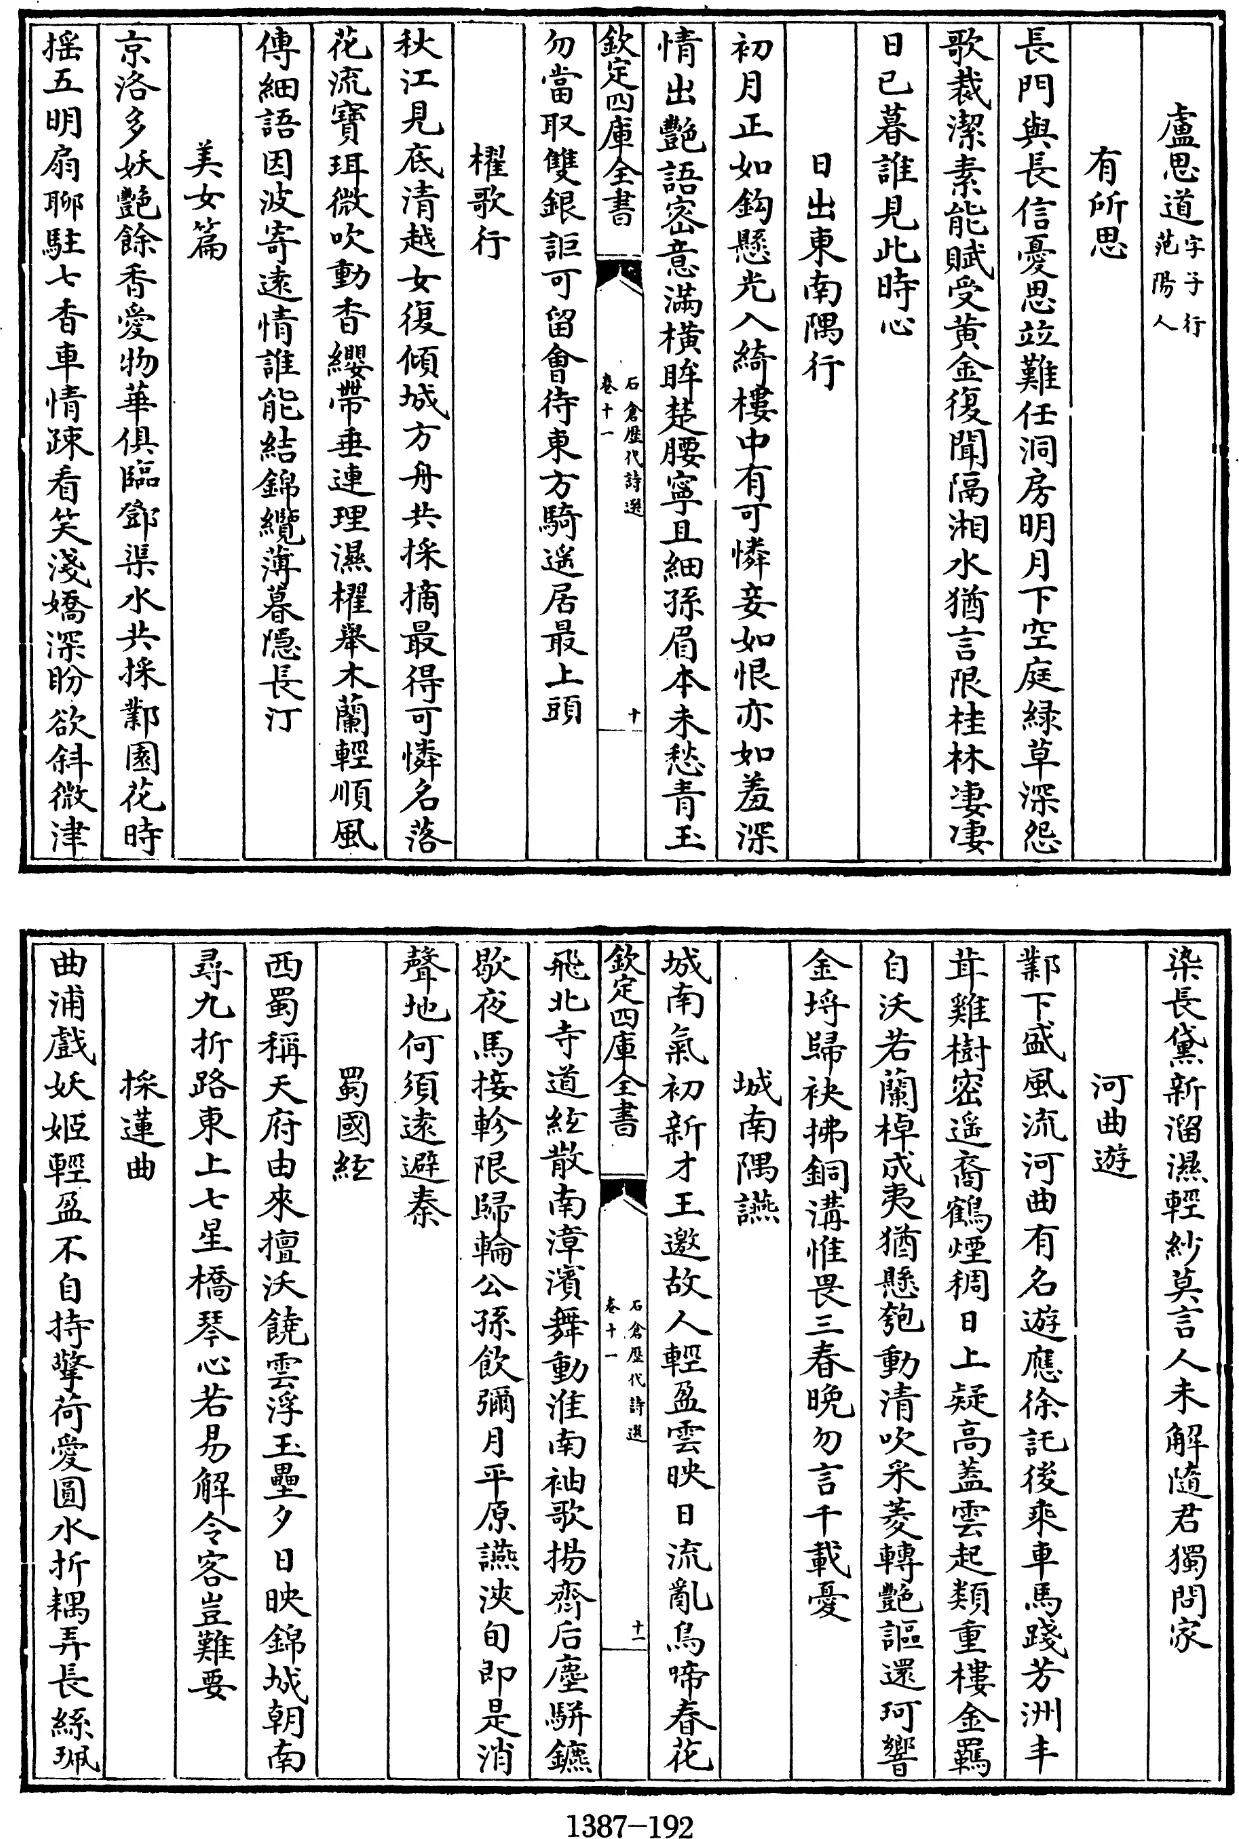 盧思道字子行范陽人
有所思
長門與長信憂思竝難任洞房明月下空庭緑草深怨
歌裁潔素能賦受黄金復聞隔湘水猶言限桂林凄凄
日已暮誰見此時心
日出東南隅行
初月正如鈎懸光入綺樓中有可憐妾如恨亦如羞深
情出艷語密意滿横眸楚腰寧且細孫眉本未愁青玉
欽定四庫全書
石倉歷代詩選
卷十一
十
勿當取雙銀詎可留會待東方騎遥居最上頭
櫂歌行
秋江見底清越女復傾城方舟共採摘最得可憐名落
花流寶珥微吹動香纓帶垂連理濕櫂舉木蘭輕順風
傳細語因波寄遠情誰能結錦纜薄暮隠長汀
美女篇
京洛多妖艷餘香愛物華俱臨鄧渠水共採鄴園花時
摇五明扇聊駐七香車情疎看笑淺嬌深盼欲斜微津
染長黛新溜濕輕紗莫言人未解隨君獨問家
河曲遊
鄴下盛風流河曲有名遊應徐託後乘車馬踐芳洲丰
茸雞樹密遥裔鶴煙稠日上疑高蓋雲起類重樓金羈
自沃若蘭棹成夷猶懸匏動清吹采菱轉艷謳還珂響
金埒歸袂拂銅溝惟畏三春晩勿言千載憂
城南隅讌
城南氣初新才王邀故人輕盈雲映日流亂鳥啼春花
欽定四庫全書
石倉歷代詩選
卷十一
十一
飛北寺道絃散南漳濱舞動淮南袖歌揚齊后塵駢鑣
歇夜馬接軫限歸輪公孫飲彌月平原讌浹旬即是消
聲地何須遠避秦
蜀國絃
西蜀稱天府由來擅沃饒雲浮玉壘夕日映錦城朝南
尋九折路東上七星橋琴心若易解令客豈難要
採蓮曲
曲浦戲妖姬輕盈不自持擎荷愛圓水折耦弄長絲珮
1387-192